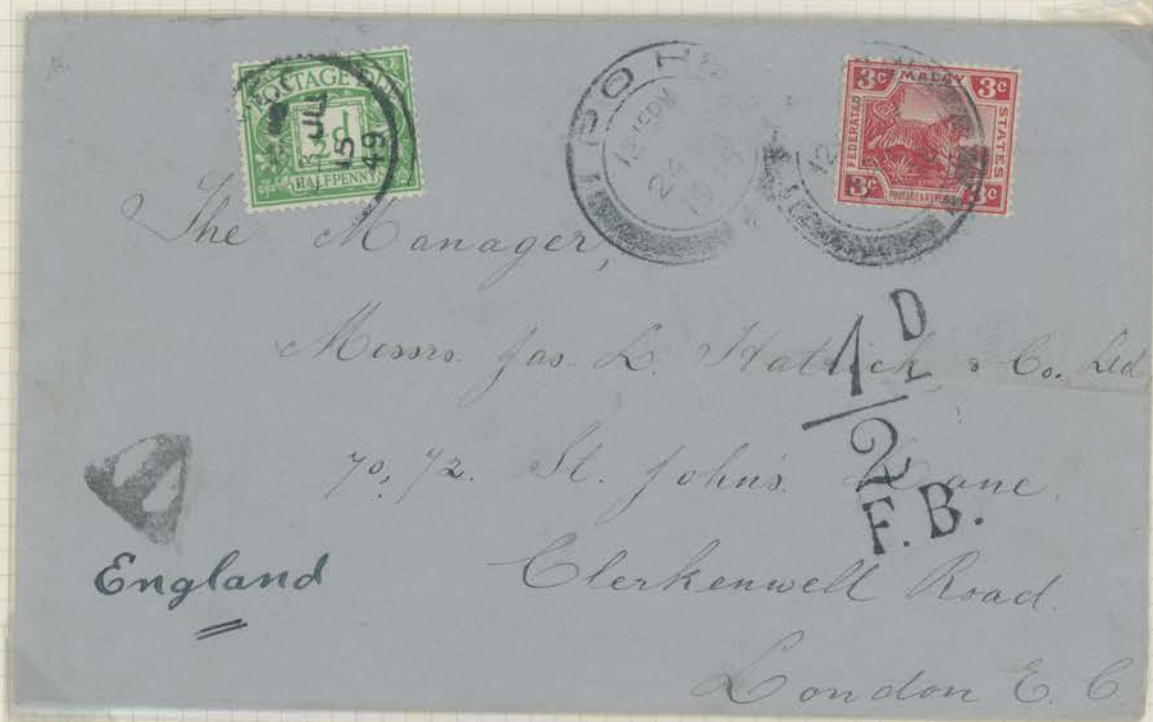 POSTAGE DUE
½d
HALFPENNY
JU
15
49
IPOH
12.15PM
24
19
3c MALAY 3c
FEDERATED
STATES
3c POSTAGE & REVENUE 3c
12
The Manager,
Messrs. Jas. L. Hattrick & Co. Ltd
70, 72. St. John's Lane.
Clerkenwell Road.
London E. C.
England
1D
2
F.B.
T